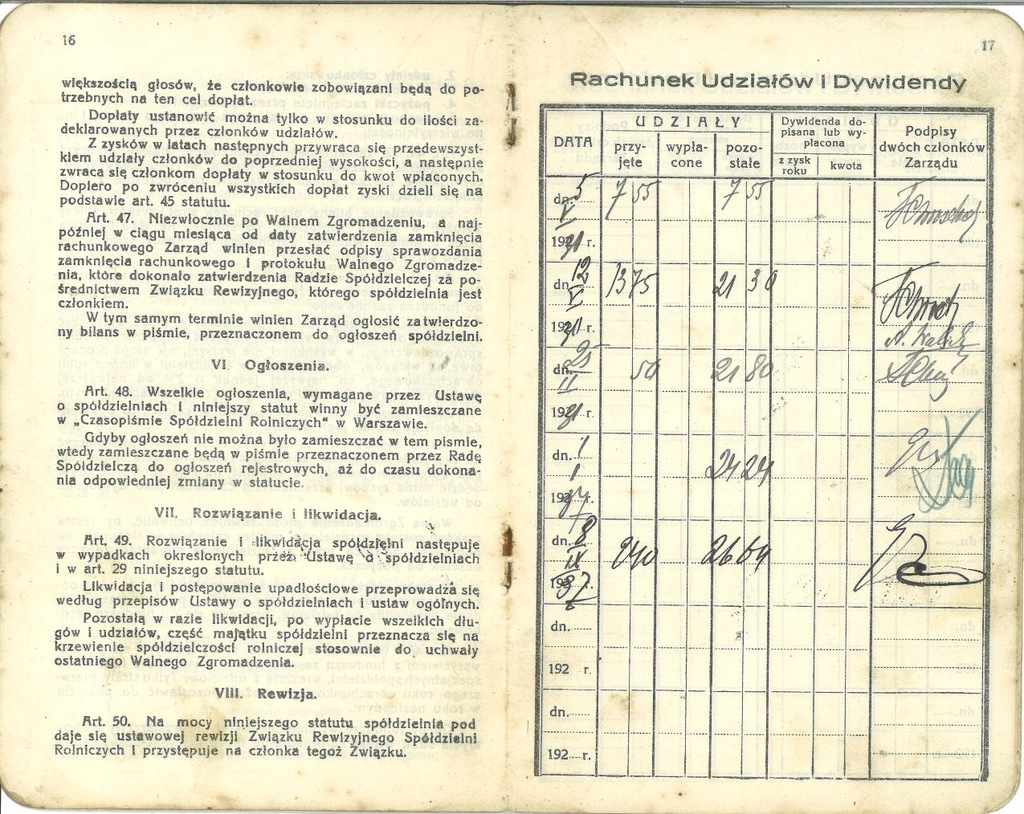 16
większością głosów, że członkowie zobowiązani będą do po-
trzebnych na ten cel dopłat.
Dopłaty ustanowić można tylko w stosunku do ilości za-
deklarowanych przez członków udziałów.
Z zysków w latach następnych przywraca się przedewszyst-
kiem udziały członków do poprzedniej wysokości, a następnie
zwraca się członkom dopłaty w stosunku do kwot wpłaconych.
Dopiero po zwróceniu wszystkich dopłat zyski dzieli się na
podstawie art. 45 statutu.
Art. 47. Niezwłocznie po Walnem Zgromadzeniu, a naj-
później w ciągu miesiąca od daty zatwierdzenia zamknięcia
rachunkowego Zarząd winien przesłać odpisy sprawozdania
zamknięcia rachunkowego i protokułu Walnego Zgromadze-
nia, które dokonało zatwierdzenia Radzie Spółdzielczej za po-
średnictwem Związku Rewizyjnego, którego spółdzielnia jest
członkiem.
W tym samym terminie winien Zarząd ogłosić zatwierdzo-
ny bilans w piśmie, przeznaczonem do ogłoszeń spółdzielni.
VI Ogłoszenia.
Art. 48. Wszelkie ogłoszenia, wymagane przez Ustawę
o spółdzielniach i niniejszy statut winny być zamieszczane
w „Czasopiśmie Spółdzielni Rolniczych" w Warszawie.
Gdyby ogłoszeń nie można było zamieszczać w tem pismie,
wtedy zamieszczane będą w piśmie przeznaczonem przez Radę
Spółdzielczą do ogłoszeń rejestrowych, aż do czasu dokona-
nia odpowiedniej zmiany w statucie.
VII. Rozwiązanie i likwidacja.
Art. 49. Rozwiązanie i likwidacja spółdzielni następuje
w wypadkach określonych przez Ustawę o spółdzielniach
i w art. 29 niniejszego statutu.
Likwidacja i postępowanie upadłościowe przeprowadza się
według przepisów Ustawy o spółdzielniach i ustaw ogólnych.
Pozostałą w razie likwidacji, po wypłacie wszelkich dłu-
gów i udziałów, część majątku spółdzielni przeznacza się na
krzewienie spółdzielczości rolniczej stosownie do uchwały
ostatniego Walnego Zgromadzenia.
VIII. Rewizja.
Art. 50. Na mocy niniejszego statutu spółdzielnia pod
daje się ustawowej rewizji Związku Rewizyjnego Spółdzielni
Rolniczych i przystępuje na członka tegoż Związku.
17
Rachunek Udziałów i Dywidendy
DATA
UDZIAŁY
przy-
jęte
wypła-
cone
pozo-
stałe
Dywidenda do-
pisana lub wy-
płacona
z zysk
roku
kwota
Podpisy
dwóch członków
Zarządu
dn. 5 7 55 7 55
V
192 r.
dn. 12 13 75 21 30
V
192 r.
dn. 25 50 21 80
II
192 r.
dn. 1 24 24
I
192 r.
dn. 8 240 26 64
IX
192 r.
dn.
192 r.
dn.
192 r.